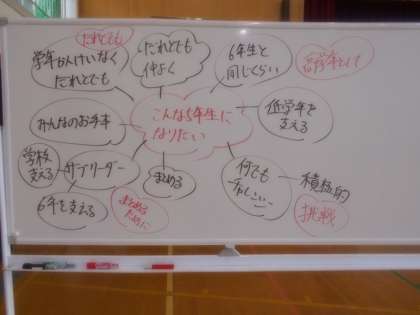 だれとでも
学年かんけいなく
だれとでも
だれとでも
仲よく
6年生と
同じくらい
高学年として
みんなのお手本
こんな5年生に
なりたい
低学年を
支える
学校
支える
サブリーダー
まとめる
何でも
積極的
挑戦
6年を支える
まとめる
ために